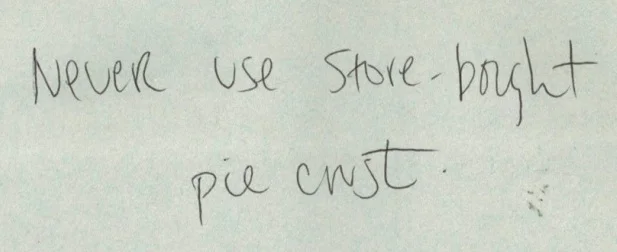 Never use store-bought
pie crust.